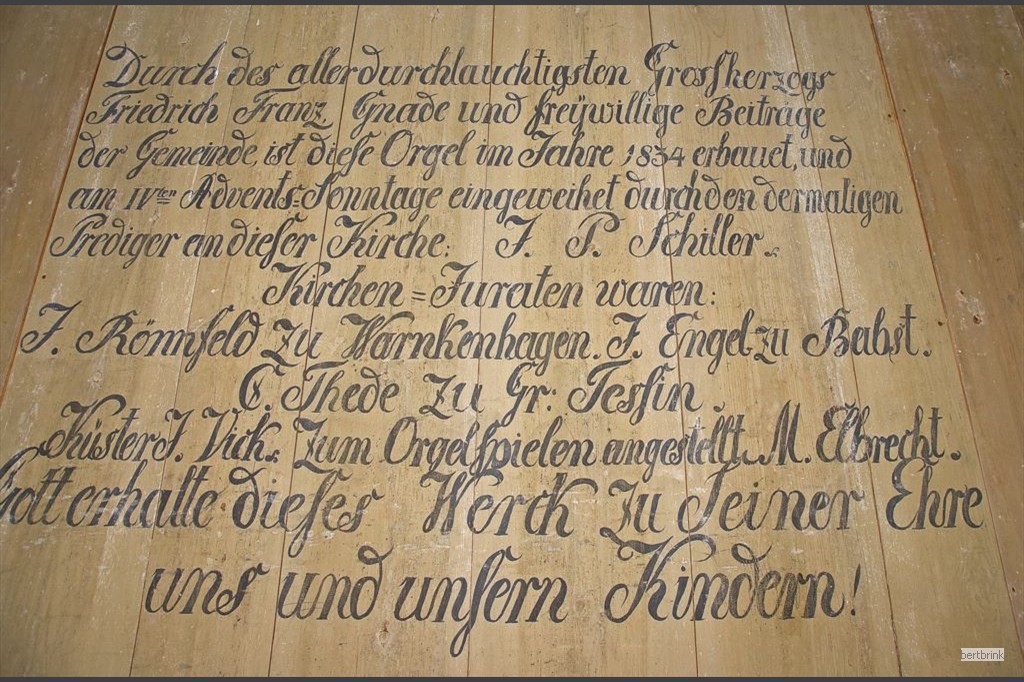 Durch des allerdurchlauchtigsten Grosſherzogs
Friedrich Franz, Gnade und freÿwillige Beiträge
der Gemeinde, ist dieſe Orgel im Jahre 1834 erbauet, und
am IVten Advents=Sonntage eingeweihet durch den dermaligen
Prediger an dieſer Kirche: J. P. Schiller.
Kirchen=Juraten waren:
J. Rönnfeld zu Warnkenhagen. J. Engel zu Babst.
C. Thede zu Gr: Teſsin
Küster J. Vick. zum Orgelſpielen angestellt M. Elbrecht.
Gott erhalte dieſes Werck zu Seiner Ehre
uns und unſern Kindern!
bertbrink